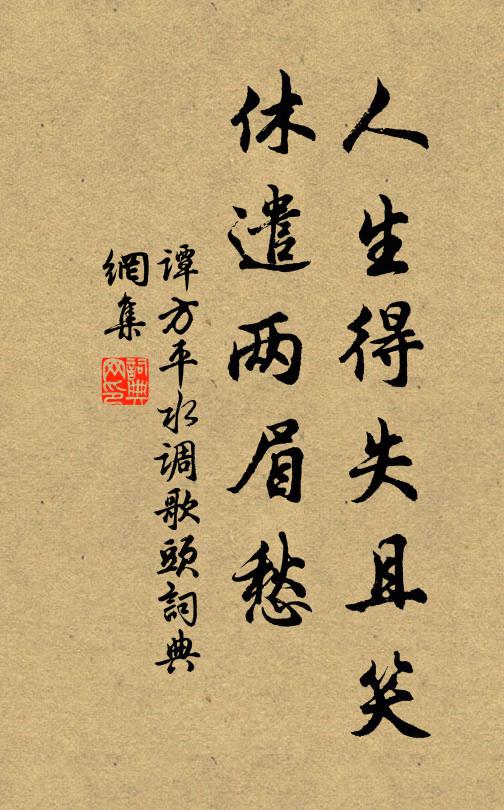 人生得失且笑
休遣两眉愁
谭方平水调歌頭詞典
網集
詞典
网印